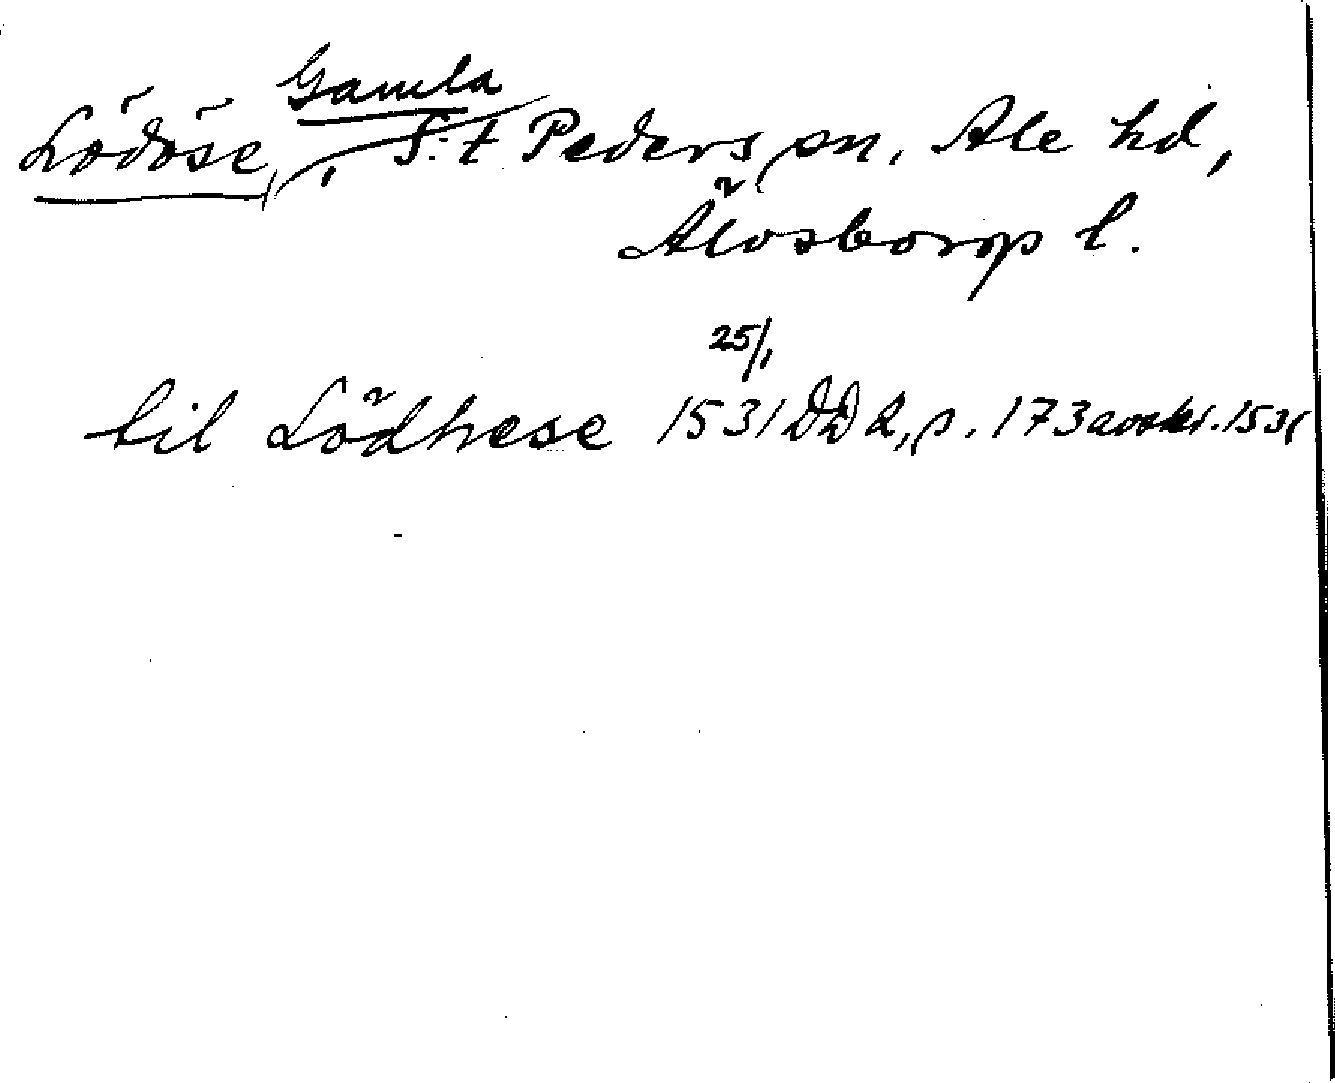 Lödöse, Gamla, S:t Peders sn, Ale hd,
Älvsborgs l.
25/1
til Lödhese 1531 DD 2, s. 173 avskr. 1531